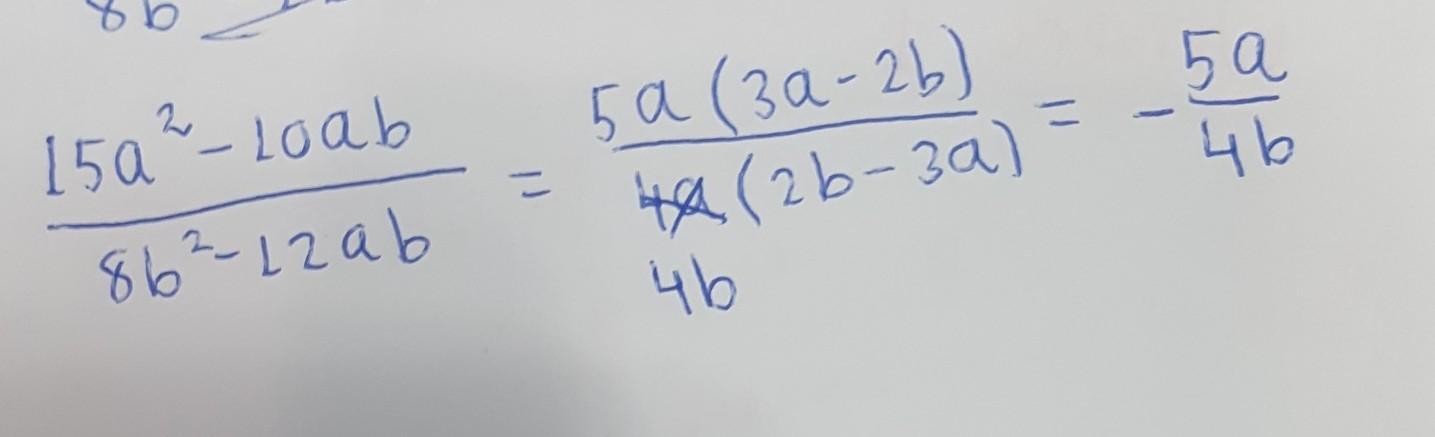 8b
15a² - 10ab / 8b² - 12ab = 5a(3a - 2b) / 4a(2b - 3a) = - 5a / 4b
4b